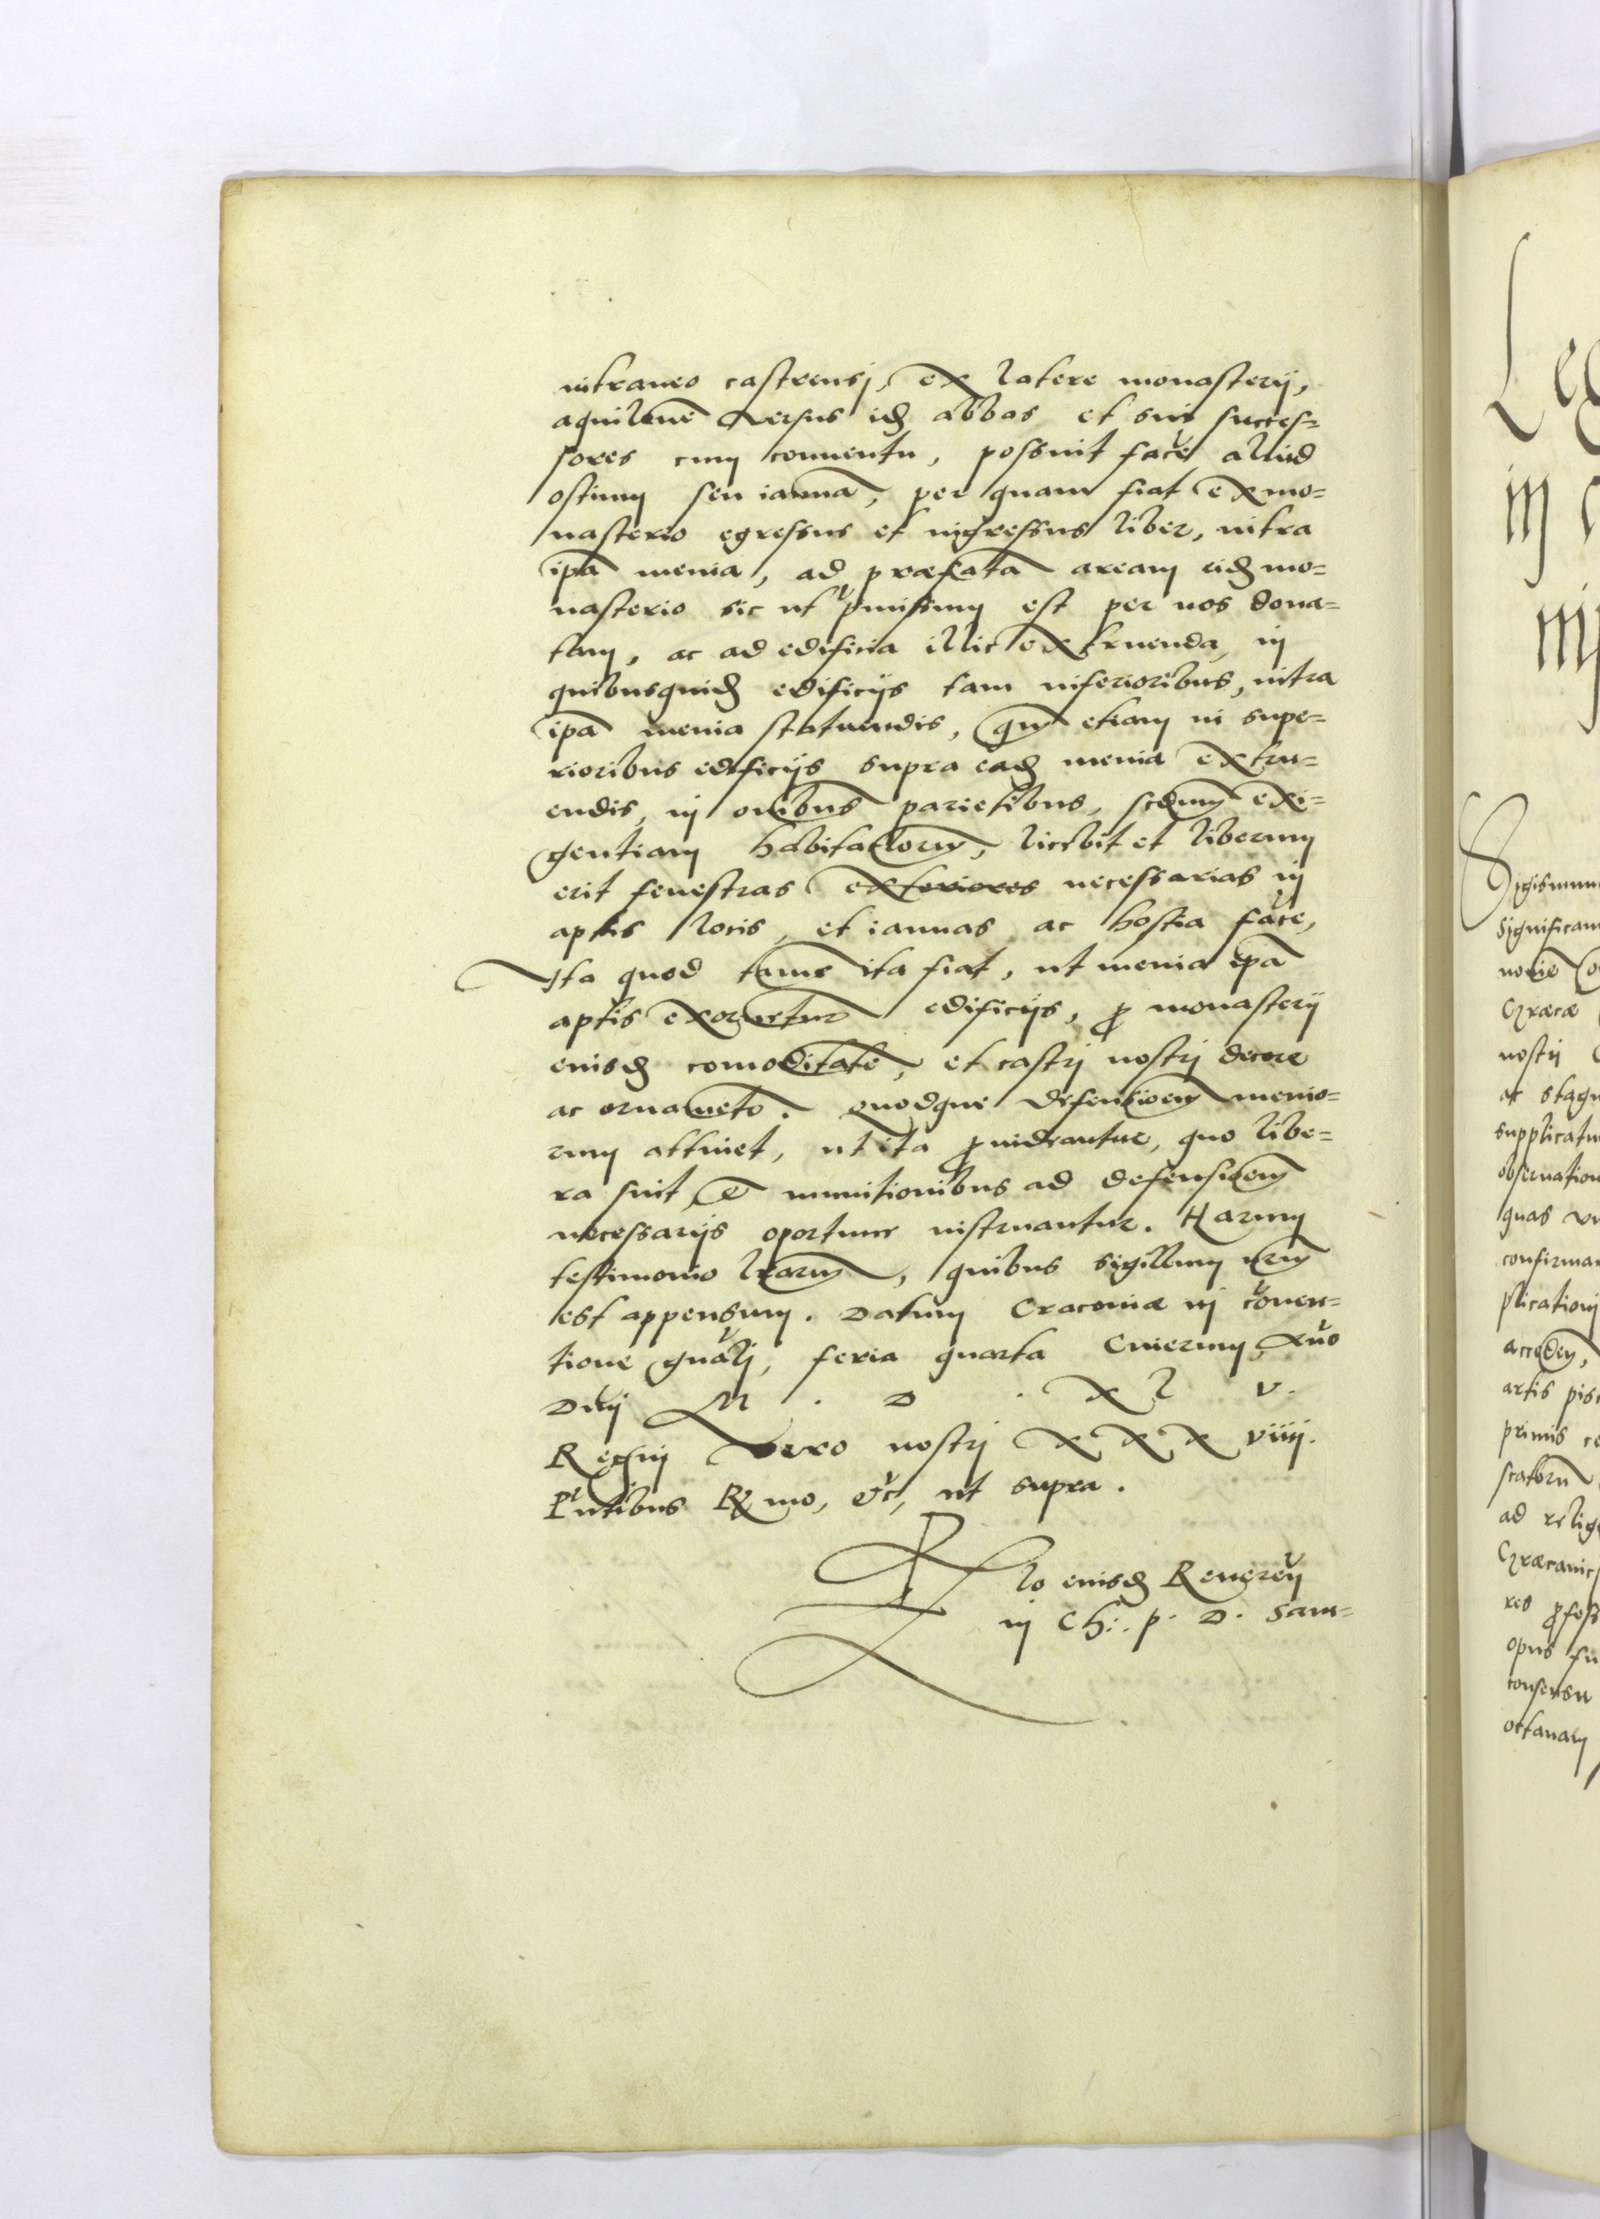 intraneo castrensj, ex latere monasterij,
aquilonē versus idē abbas et sui succes=
sores cum conuentu, possint facē aliud
ostium seu ianuā, per quam fiat ex mo=
nasterio egressus et ingressus liber, intra
ipā menia, ad præfatā aream eidē mo=
nasterio sic ut p̄missum est per nos dona=
tam, ac ad edificia illic extruenda, in
quibusquidē edificijs tam inferioribus, intra
ipā menia statuendis, qm̄ etiam in supe=
rioribus edificijs supra eadē menia extru=
endis, in oībus parietibus, scdum exi=
gentiam habitatorū, licebit et liberum
erit fenestras exteriores necessarias in
aptis locis, et ianuas ac hostia facē,
Ita quod tamē ita fiat, ut menia ipā
aptis exornētur edificijs, ꝓ monasterij
eiusdē comoditate, et castrj nostrj decore
ac ornamēto. Quodque defensioem menio=
rum attinet, ut ita ꝓuideantur, quo libe=
ra sint, & munitionibus ad defensioem
necessarijs oportune instruantur. Harum
testimonio lrarum, quibus sigillum nrm
est appensum. Datum Cracouiæ in cōuen=
tione gnālj, feria quarta Cinerum, Anō
Dnj M . D . X L V .
Regnj vero nostrj X X X viiij.
Pn̄tibus Rmo, &c, ut supra.
Rlo eiusdē Reuerēn
in Ch: p. D. Sam=
Leg
in
Sigismun
significam
Græcæ
nostrj
ac stagn
supplicatu
obseruation
quas
confirma
plicationj
acceden,
artis pis
primis
ad relig
Græcanic
ꝓfess
opus fu
consensu
octauam